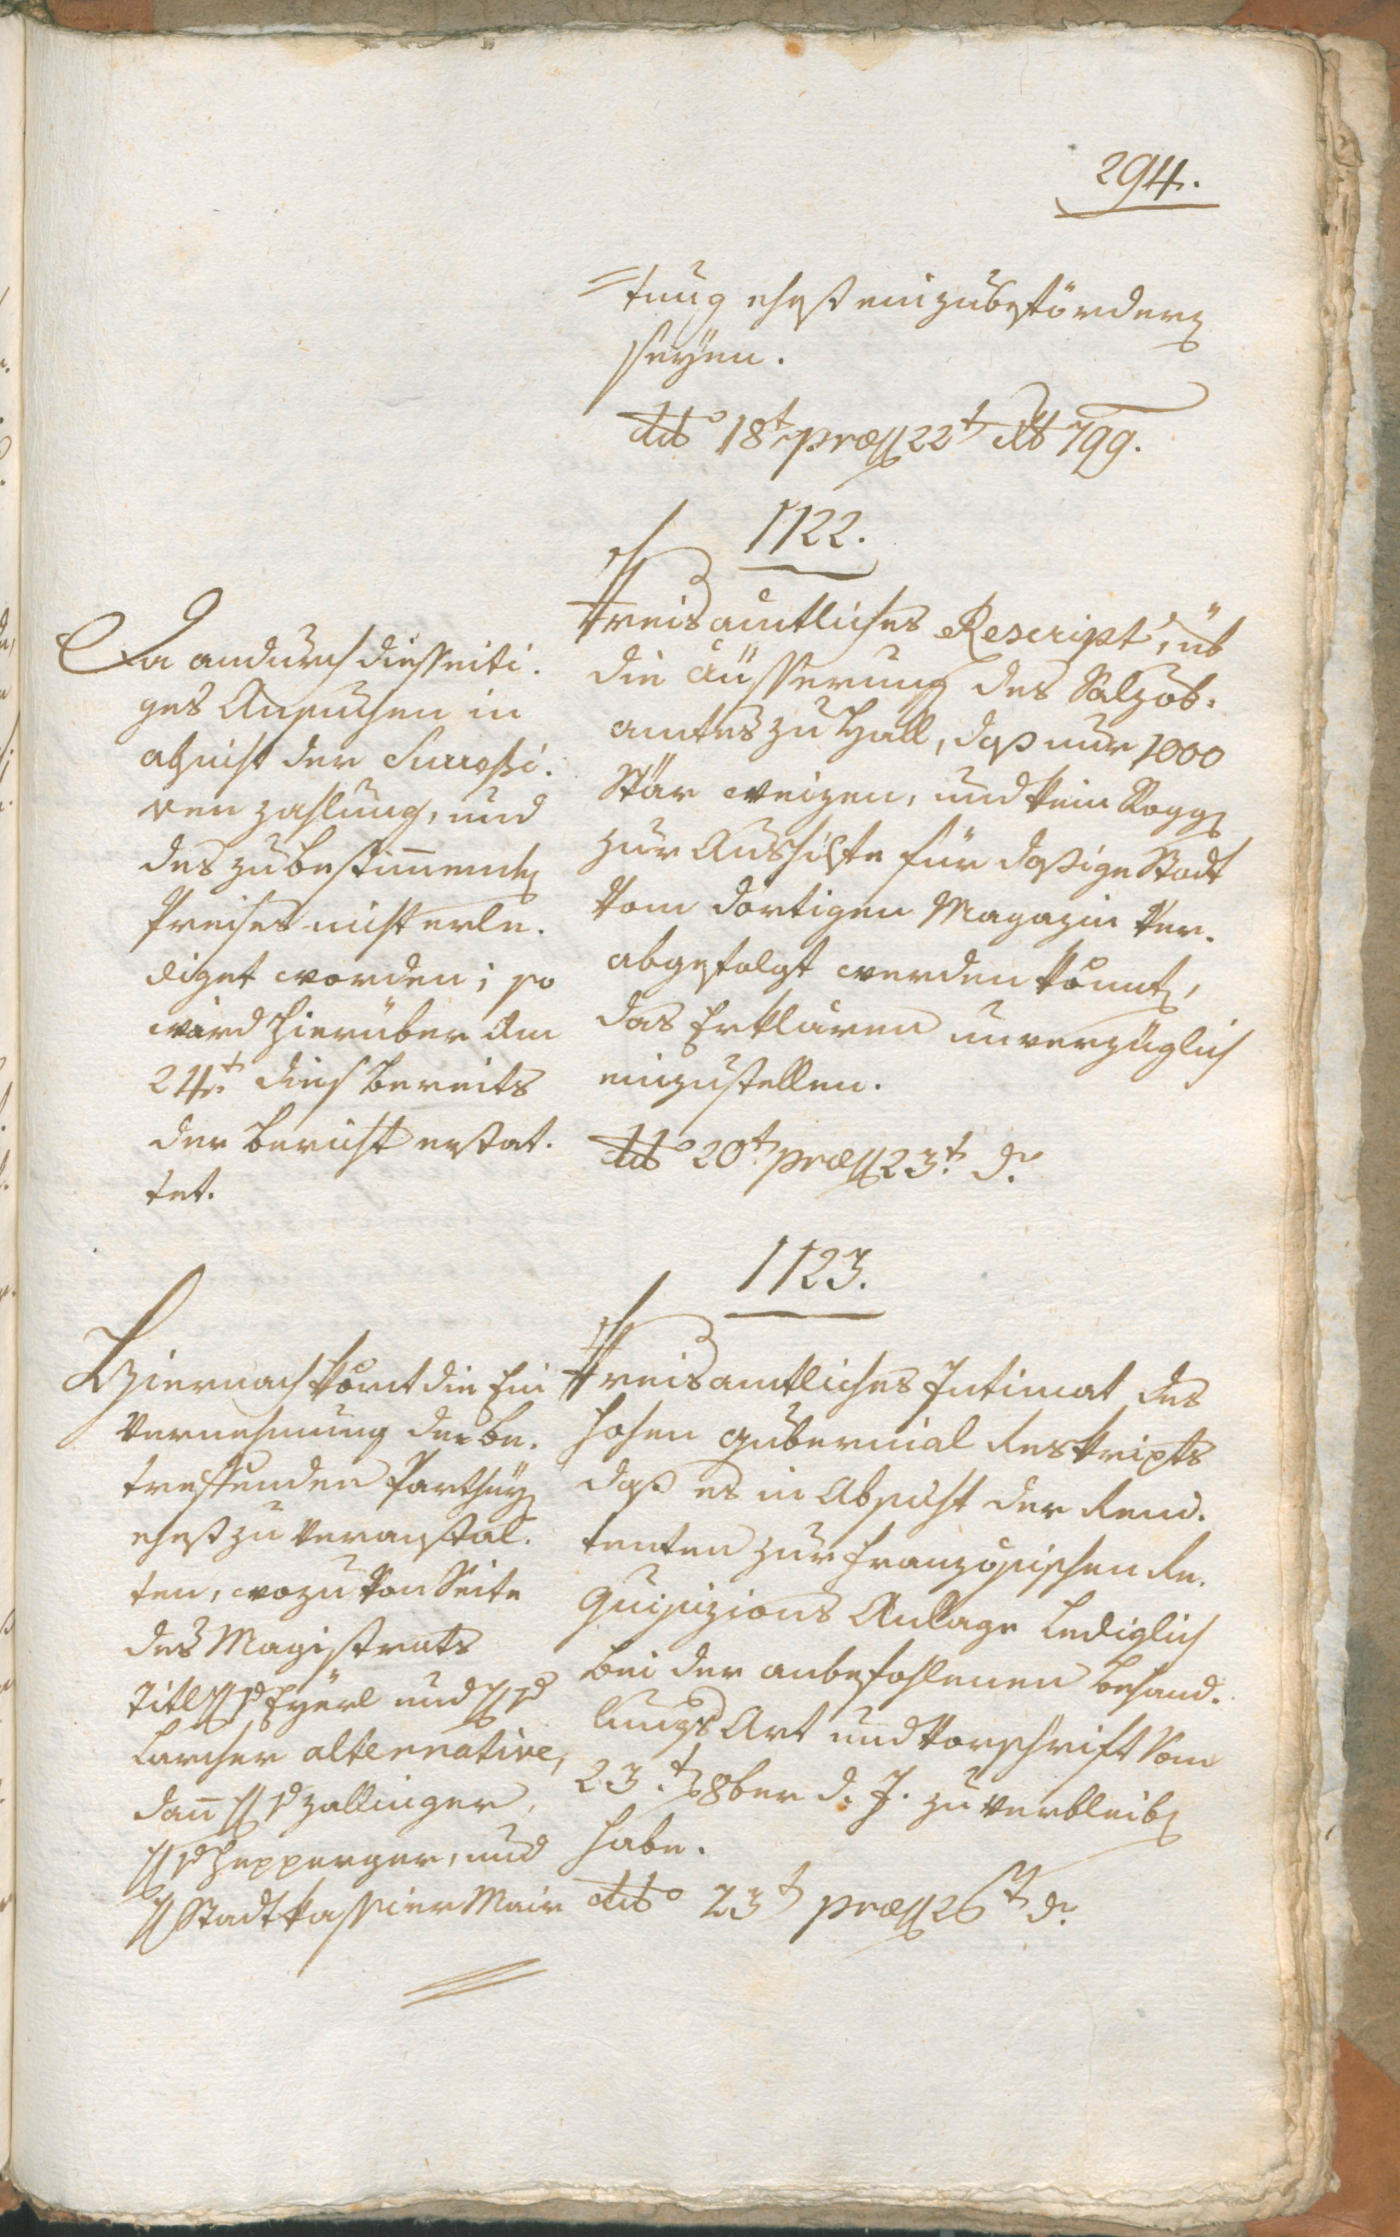 294.
=tung ehest einzubefördern
seyen.
dto 18t. præs 22t 8b 799.
1122.
Kreisamtliches Rescript, üb
die äusserung des Salzob.
amtes zu Hall, daß nur 1000
Stär weizen, und kein Rogg
zur Aushilfe für dasige Stadt
vom dortigen Magazin ver.
abgefolgt werden könnt,
das Erklären unverzüglich
einzustellen.
dto 20t. præs 23t. d:
Da andurch diesseiti.
ges Ansuchen in
absicht der Successi.
ven zahlung, und
des zu bestimmend
Preises nicht erle.
diget worden; so
wird hierüber Am
24t. dies bereits
der bericht erstat.
tet.
1123.
Kreisamtliches Intimat des
hohen gubernial Reskripts
daß es in Absicht der Reni.
tenten zur französischen Re.
quisizions Anlage lediglich
bei der anbefohlenen behand.
lungs Art und Vorschrift vom
23.t 8ber d. J. zu verbleib
habe.
dto 23t præs 26t d:
Hiernach kömt die Ein
vernehmung der be.
treffenden Partheyen
ehest zu veranstal.
ten, wozu von Seite
des Magistrats
Titl H v Eyerl und H v
Larcher alternative,
dann H v zallinger,
H v Hepperger, und
H Stadtkassier Mair